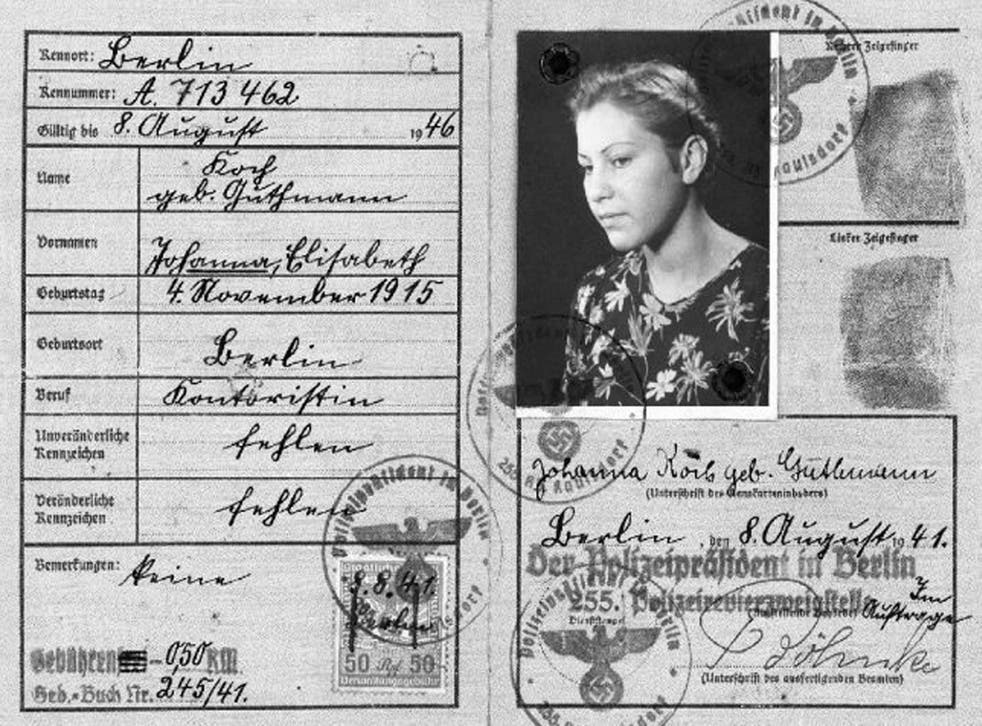 Kennort: Berlin
Kennummer: A. 713 462
Gültig bis 8. August 1946
Name
Koch
geb. Guthmann
Vornamen
Johanna, Elisabeth
Geburtstag
4. November 1915
Geburtsort
Berlin
Beruf
Kontoristin
Unveränderliche
Kennzeichen
fehlen
Veränderliche
Kennzeichen
fehlen
Bemerkungen: keine
Der Polizeipräsident in Berlin
8.8.41.
Berlin
50 Rpf 50
Verwaltungsgebühr
Gebühren 0,50 RM.
Geb.-Buch Nr. 245/41.
Rechter Zeigefinger
Linker Zeigefinger
Johanna Koch geb. Guthmann
(Unterschrift des Kennkarteninhabers)
Berlin, den 8. August 1941.
Der Polizeipräsident in Berlin
255. Polizeirevierzweigstelle
Im
Auftrage
(Ausstellende Behörde)
Dienststempel
(Unterschrift des ausfertigenden Beamten)